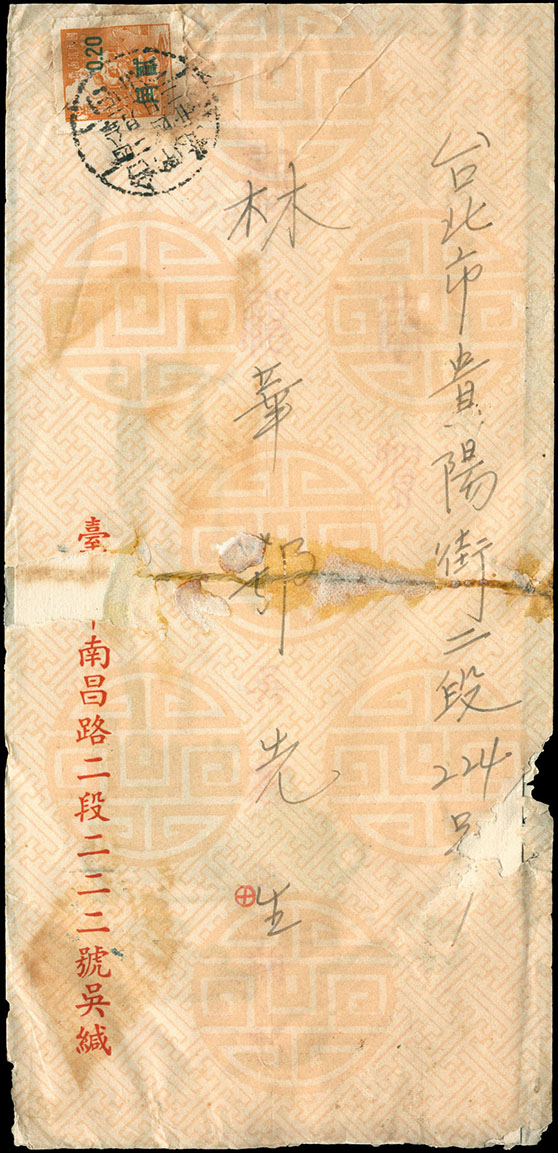 台北市貴陽街二段224号
林華鄂先生
臺
南昌路二段二二二號吳緘
0.20
貳角